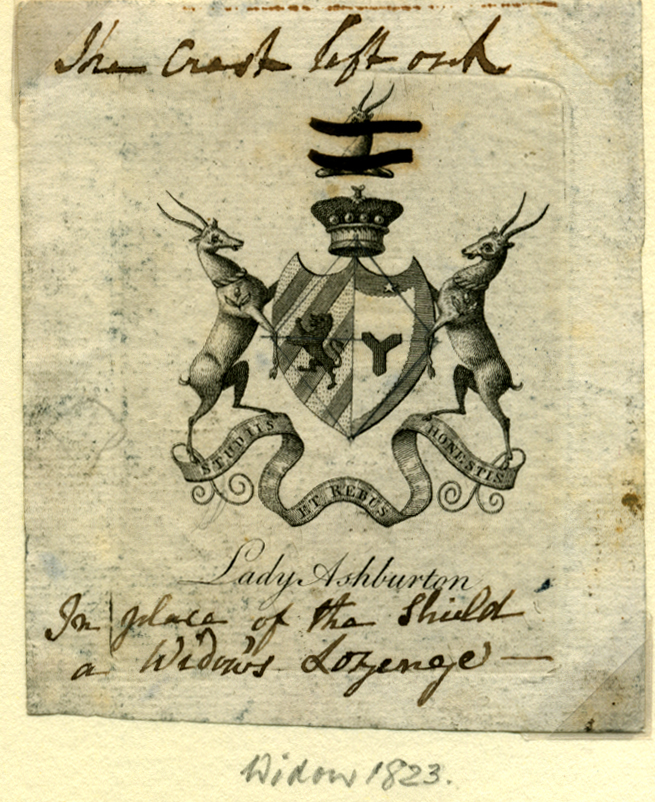 The Crest left out
STUDIIS
ET REBUS
HONESTIS
Lady Ashburton
In place of the Shield
a Widow's Lozenge —
Widow 1823.